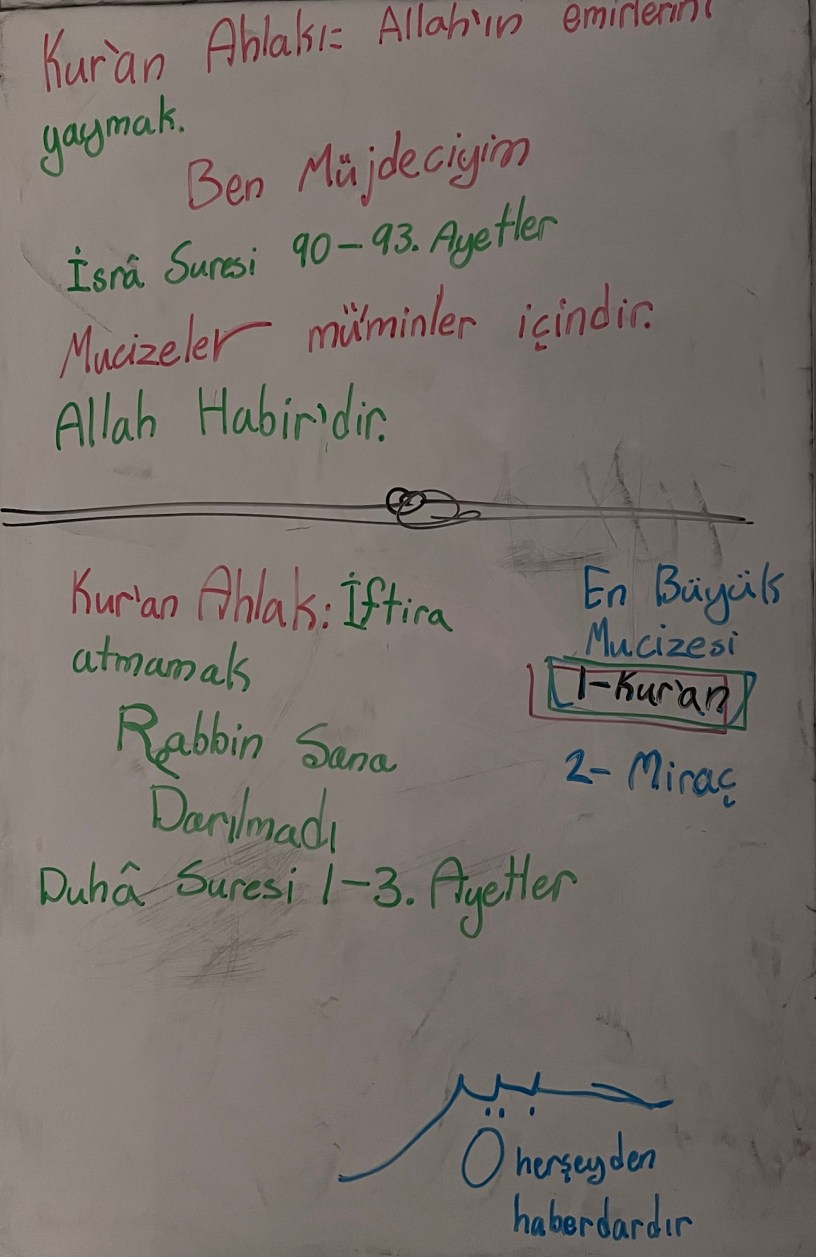 Kur'an Ahlakı: Allah'ın emirlerini
yaymak.
Ben Müjdeciyim
İsrâ Suresi 90-93. Ayetler
Mucizeler mü'minler içindir.
Allah Habir'dir.
Kur'an Ahlak: İftira
atmamak
Rabbin Sana
Darılmadı
Duhâ Suresi 1-3. Ayetler
En Büyük
Mucizesi
1-Kur'an
2- Miraç
خبير
O herşeyden
haberdardır